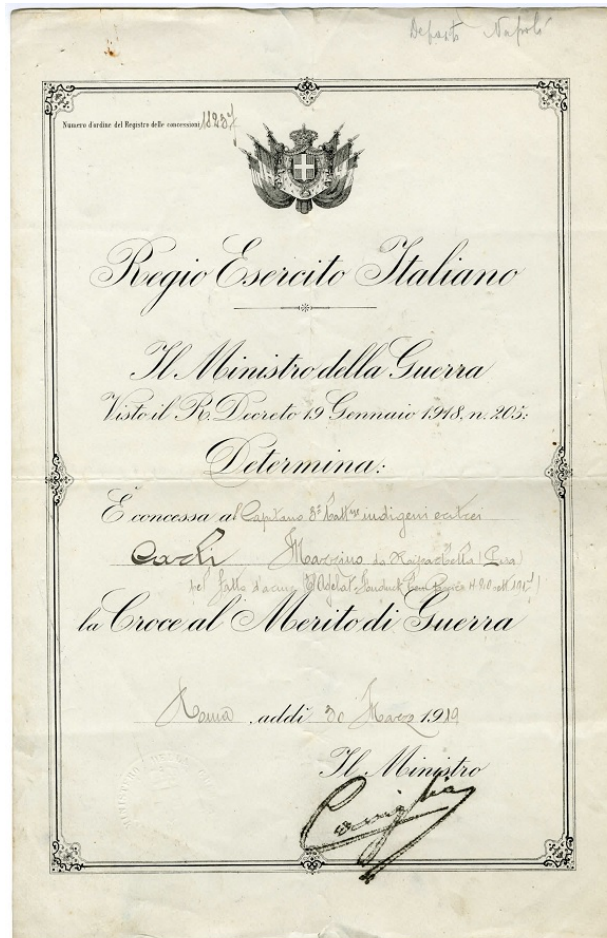 Numero d'ordine del Registro delle concessioni 11823
Regio Esercito Italiano
Il Ministro della Guerra
Visto il R. Decreto 19 Gennaio 1918, n. 205:
Determina:
È concessa al Capitano 8° Batt indigeni eritrei
Marzino da
pel fatto d'arme
la Croce al Merito di Guerra
Roma, addì 30 Marzo 1919
Il Ministro
Caviglia